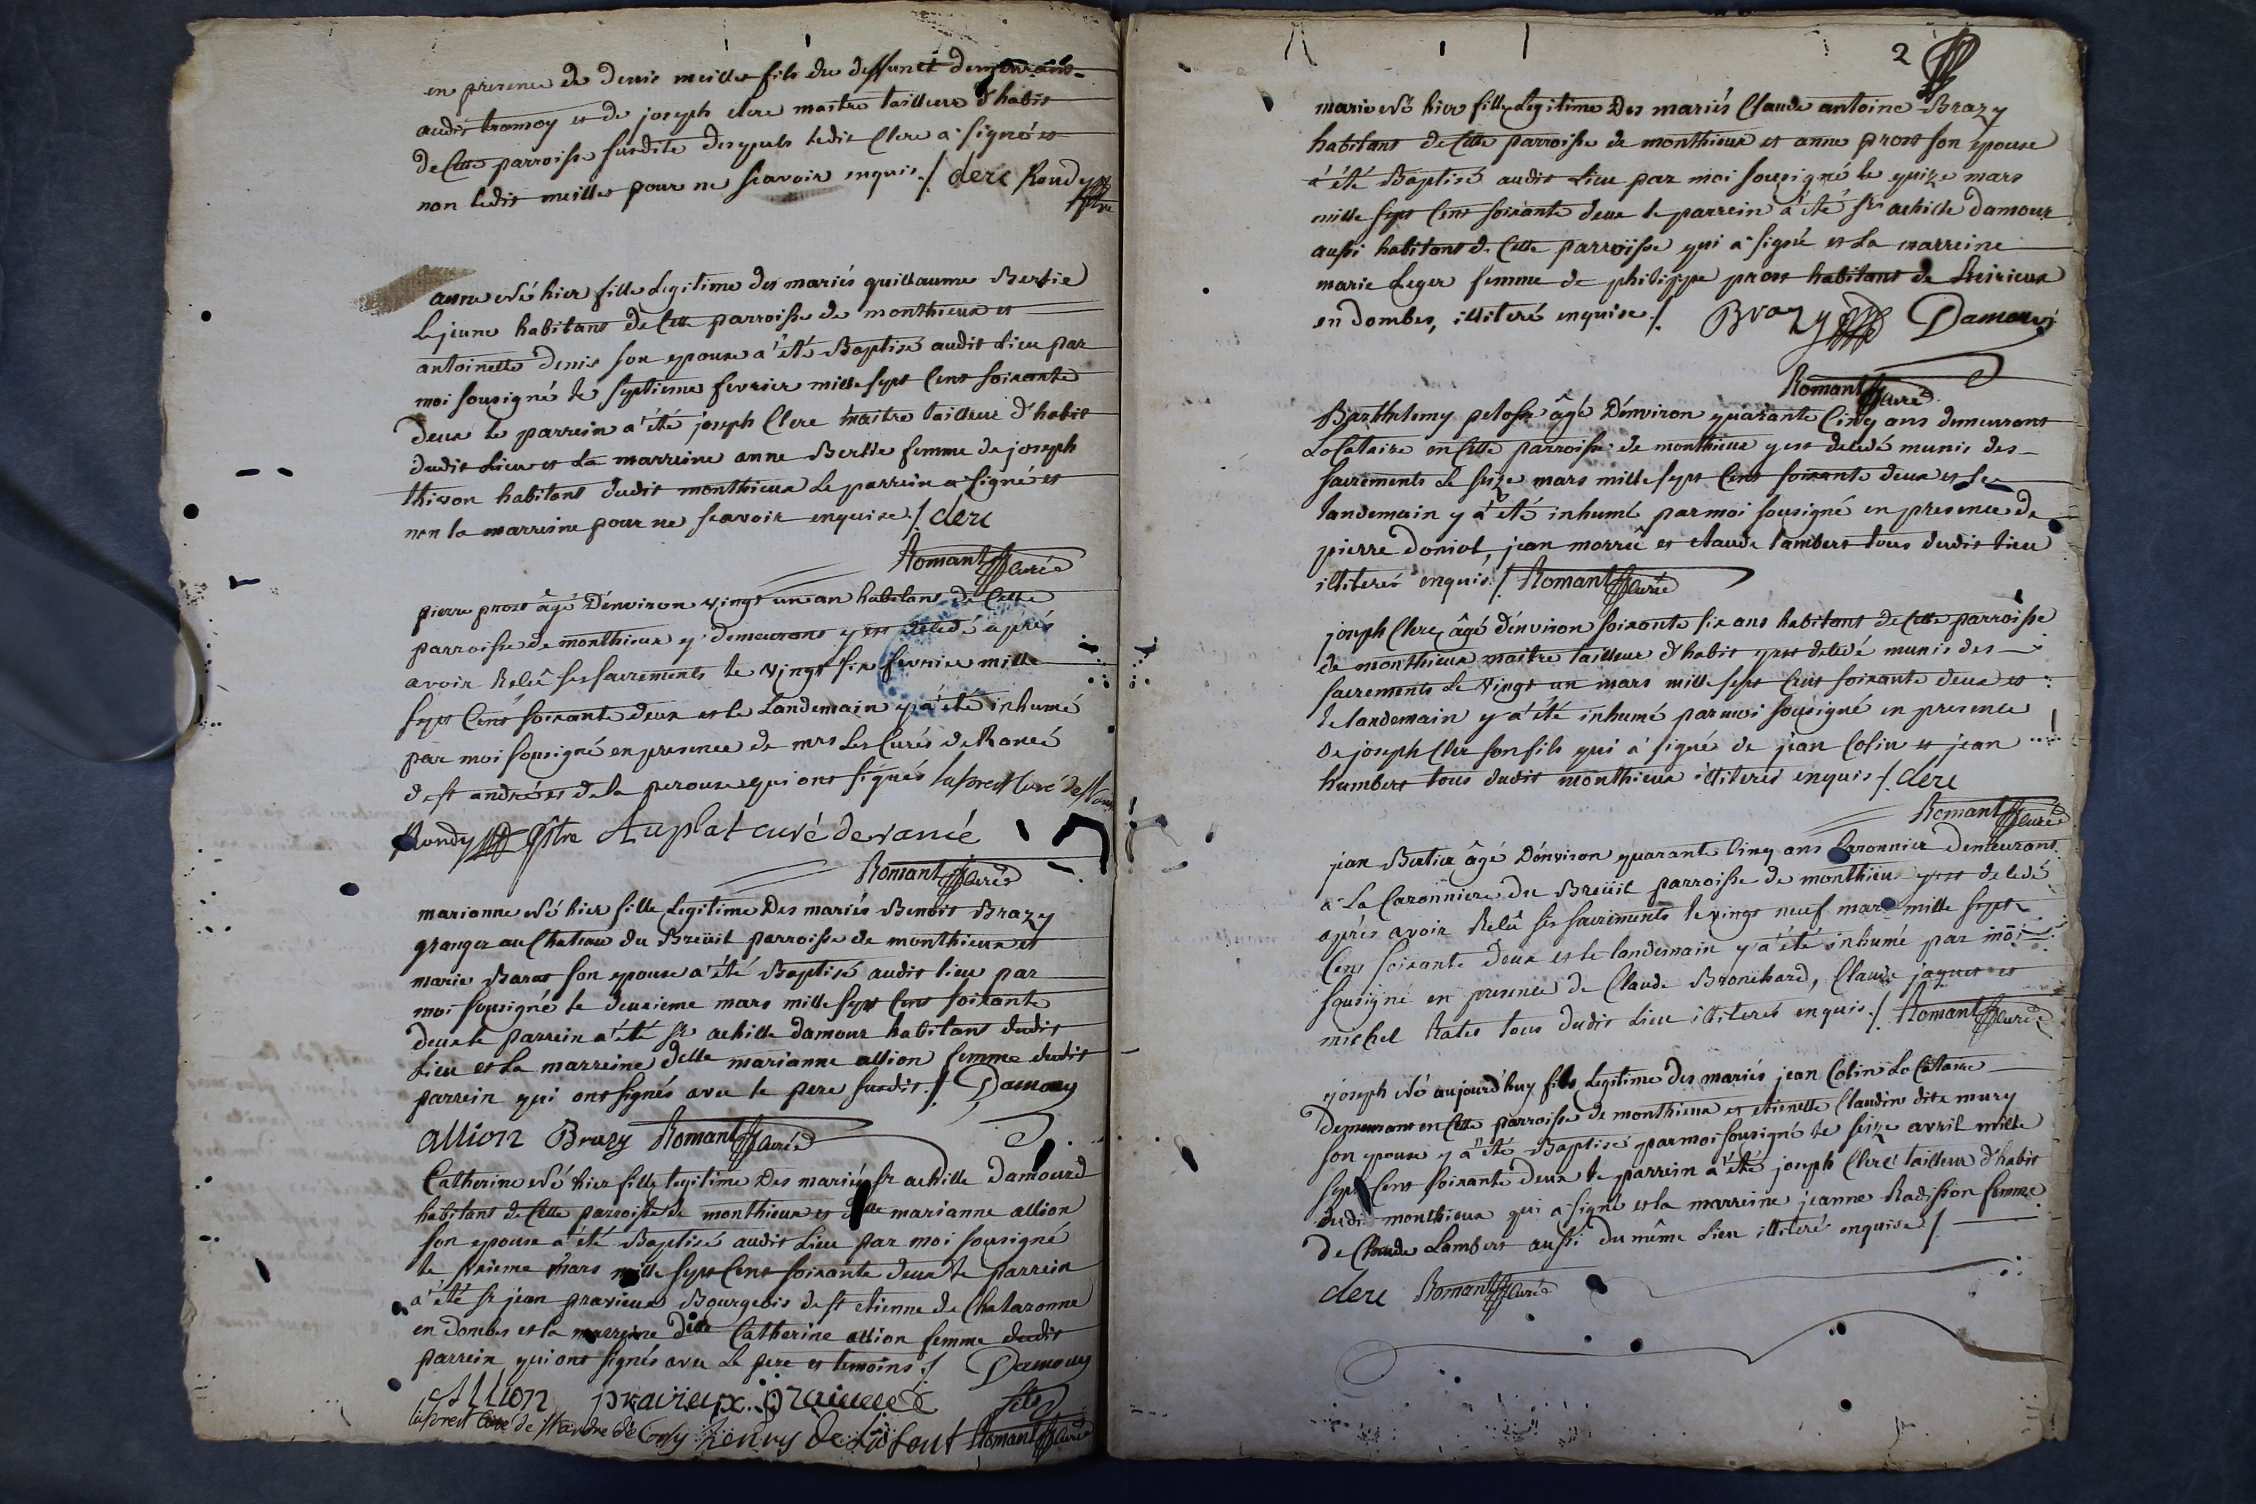 en presence de denis meillet fils du deffunct demeurant
audit tramoy et de joseph clerc maitre tailleur d'habit
de Cette parroisse susdite desquels ledit Clerc a signé et
non ledit meillet pour ne scavoir enquis ./. clerc Rondy
ptre
anne née hier fille Legitime des mariés guillaume Bertie
Le jeune habitans de Cette parroisse de monthieux et
antoinette denis son epouse a été Baptisé audit Lieu par
moi sousigné le septieme fevrier mille sept Cent soixante
deux le parrein a été joseph Clerc maitre tailleur d'habit
dudit Lieu et La marreine anne Bertie femme de joseph
thivon habitans dudit monthieux Le parrein a signé et
non la marreine pour ne scavoir enquise ./. clerc
Romant Curé
pierre prost âgé D'environ vingt un an habitans de Cette
parroisse de monthieux y demeurant y est deledé après
avoir Relû ses sacrements le vingt six fevrier mille
sept Cent soixante deux et le Landemain y a été inhumé
par moi sousigné en presence de mrs Les Curés de Rancé
de st andré et de la perouse qui ont signés Laforest Curé de st
Rondy ptre Auplat curé de rancé
Romant Curé
marianne née hier fille Legitime Des mariés Benoit Brazy
granger au Chateau du Breüil parroisse de monthieux et
marie Barat son epouse a été Baptisé audit lieu par
moi sousigné le deuxieme mars mille sept Cent soixante
deux le parrein a été sr achille damour habitant dudit
Lieu et La marreine delle marianne allion femme dudit
parrein qui ont signés avec le pere susdit ./. Damour
allion Brazy Romant Curé
Catherine née hier fille legitime Des mariés sr achille Damourd
habitans de Cette parroisse de monthieux et delle marianne allion
son epouse a été Baptisé audit Lieu par moi sousigné
le sixieme mars mille sept Cent soixante deux le parrein
a été sr jean pravieux Bourgeois de st etienne de Chalaronne
en dombes et la marreine delle Catherine allion femme dudit
parrein qui ont signés avec Le pere et temoins ./. Damour
Allion pravieux
fils
Laforest Curé de st andré de Corcy henry de Lafont Romant Curé
2
marie née hier fille Legitime Des mariés Claude antoine Brazy
habitans de Cette parroisse de monthieux et anne prost son epouse
a été Baptisé audit Lieu par moi sousigné le quinze mars
mille sept Cent soixante deux le parrein a été sr achille damour
aussi habitant de Cette parroisse qui a signé et La marreine
marie Leger femme de philippe prost habitans de
en Dombes, illiteré enquise ./. Brazy Damour
Romant Curé
Barthelemy pelosse âgé D'environ quarante Cinq ans demeurant
Locataire en Cette parroisse de monthieux y est deledé munis des
sacrements Le seize mars mille sept Cent soixante deux et le
landemain y a été inhumé par moi sousigné en presence de
pierre doniol, jean morrié et claude lambert tous dudit Lieu
illiterés enquis ./. Romant Curé
joseph Clerc âgé d'environ soixante six ans habitant de Cette parroisse
de monthieux maitre tailleur d'habit y est deledé munis des
sacrements Le vingt un mars mille sept Cent soixante deux et
le landemain y a été inhumé par moi sousigné en presence
de joseph Clerc son fils qui a signé de jean Colin et jean
humbert tous dudit monthieux illiterés enquis ./. clerc
Romant Curé
jean Bertier âgé D'environ quarante Cinq ans Caronnier Demeurant
a La Caronniere du Breüil parroisse de monthieux y est deledé
après avoir Relû ses sacrements le vingt neuf mars mille sept
Cent soixante deux et le landemain y a été inhumé par moi
sousigné en presence de Claude Bronchard, Claude jaquet et
michel Ratet tous dudit Lieu illiterés enquis ./. Romant Curé
joseph né aujourd'huy fils Legitime des mariés jean Colin Locataire
Demeurant en Cette parroisse de monthieux et etienette Claudin dite mury
son epouse y a été Baptisé par moi sousigné le seize avril mille
sept Cent soixante deux le parrein a été joseph Clerc tailleur d'habit
dudit monthieux qui a signé et la marreine jeanne Radisson femme
de Claude Lambert aussi du même Lieu illiteré enquise ./.
clerc Romant Curé